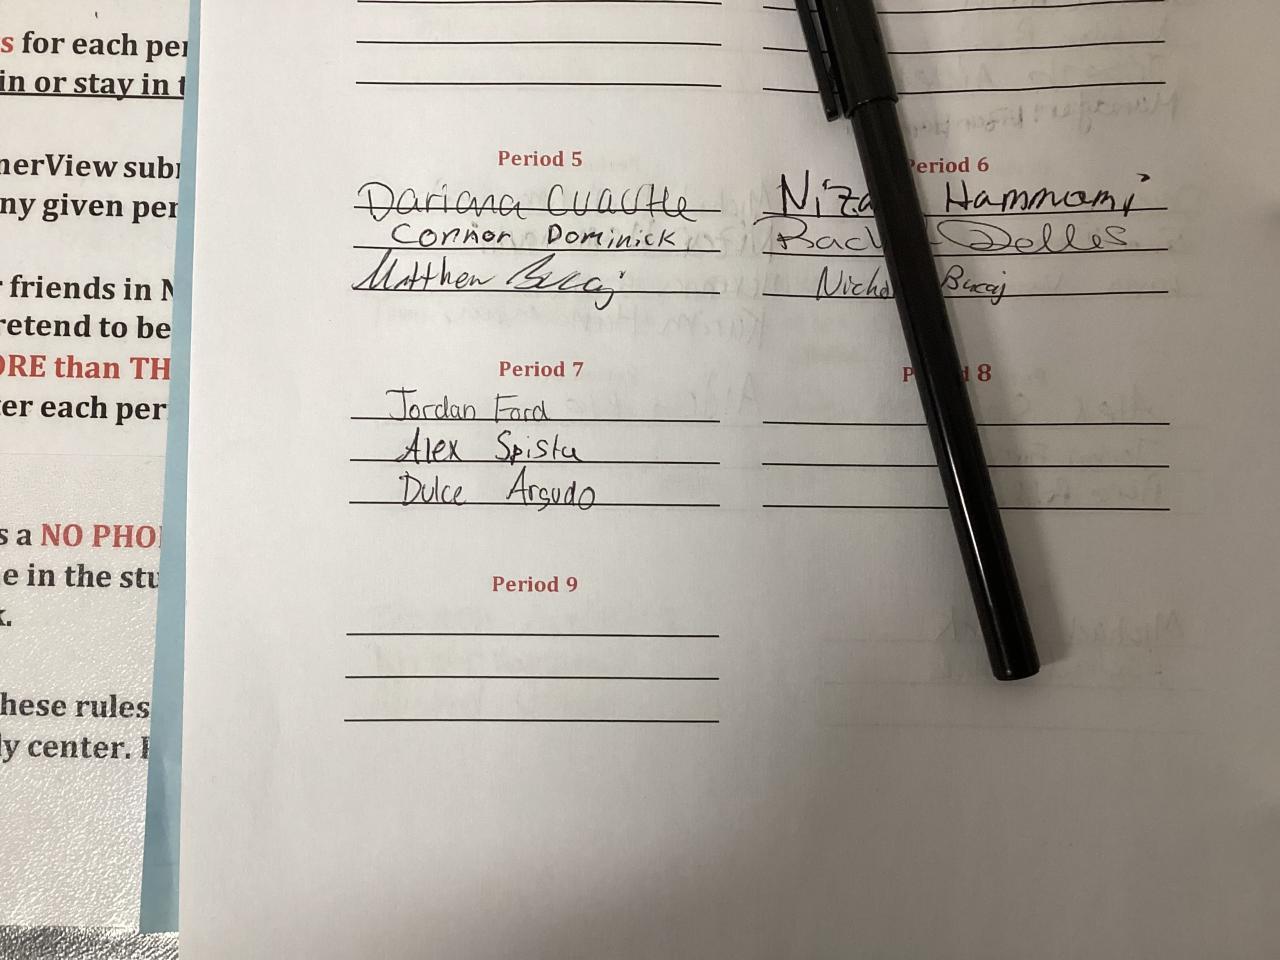 s for each per
in or stay in t
nerView subr
ny given per
r friends in N
retend to be
ORE than TH
ter each per
s a NO PHO
e in the stu
k.
hese rules
ly center. I
Period 5
Dariana Cuautle
Connor Dominick
Matthew Bucaj
Period 6
Niza Hammami
Rach Dolles
Nicho Bucaj
Period 7
Jordan Ford
Alex Spista
Dulce Argudo
P d 8
Period 9